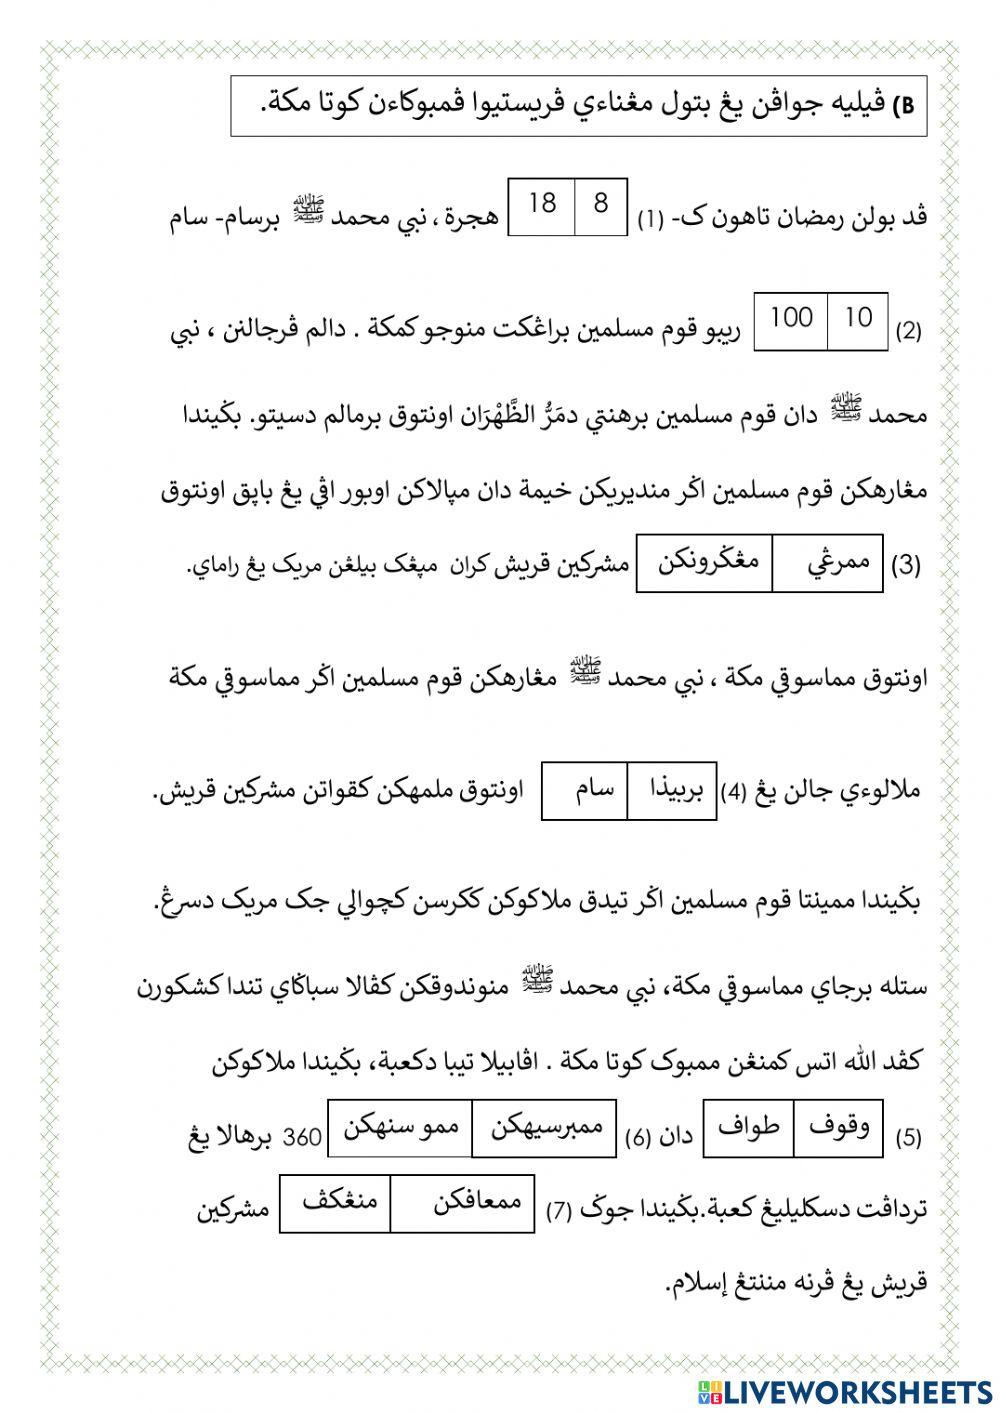 B) ڤيليه جواڤن يڠ بتول مڠناءي ڤريستيوا ڤمبوكاءن كوتا مكة.
ڤد بولن رمضان تاهون ک- (1) 8 18 هجرة ، نبي محمد ﷺ برسام- سام
(2) 10 100 ريبو قوم مسلمين براڠكت منوجو كمكة . دالم ڤرجالنن ، نبي
محمد ﷺ دان قوم مسلمين برهنتي دمَرُّ الظَّهْرَان اونتوق برمالم دسيتو. بݢيندا
مڠارهكن قوم مسلمين اݢر منديريكن خيمة دان مڽالاكن اوبور اڤي يڠ باڽق اونتوق
(3) ممرڠي مڠݢرونكن مشركين قريش كران مڽڠک بيلڠن مريک يڠ راماي.
اونتوق مماسوقي مكة ، نبي محمد ﷺ مڠارهكن قوم مسلمين اݢر مماسوقي مكة
ملالوءي جالن يڠ (4) بربيذا سام اونتوق ملمهكن كقواتن مشركين قريش.
بݢيندا ممينتا قوم مسلمين اݢر تيدق ملاكوكن ككرسن كچوالي جک مريک دسرڠ.
ستله برجاي مماسوقي مكة، نبي محمد ﷺ منوندوقكن كڤالا سباݢاي تندا كشكورن
كڤد الله اتس كمنڠن ممبوک كوتا مكة . اڤابيلا تيبا دكعبة، بݢيندا ملاكوكن
(5) وقوف طواف دان (6) ممبرسيهكن ممو سنهكن 360 برهالا يڠ
ترداڤت دسكليليڠ كعبة.بݢيندا جوݢ (7) ممعافكن منڠكڤ مشركين
قريش يڠ ڤرنه مننتڠ إسلام.
LIVEWORKSHEETS